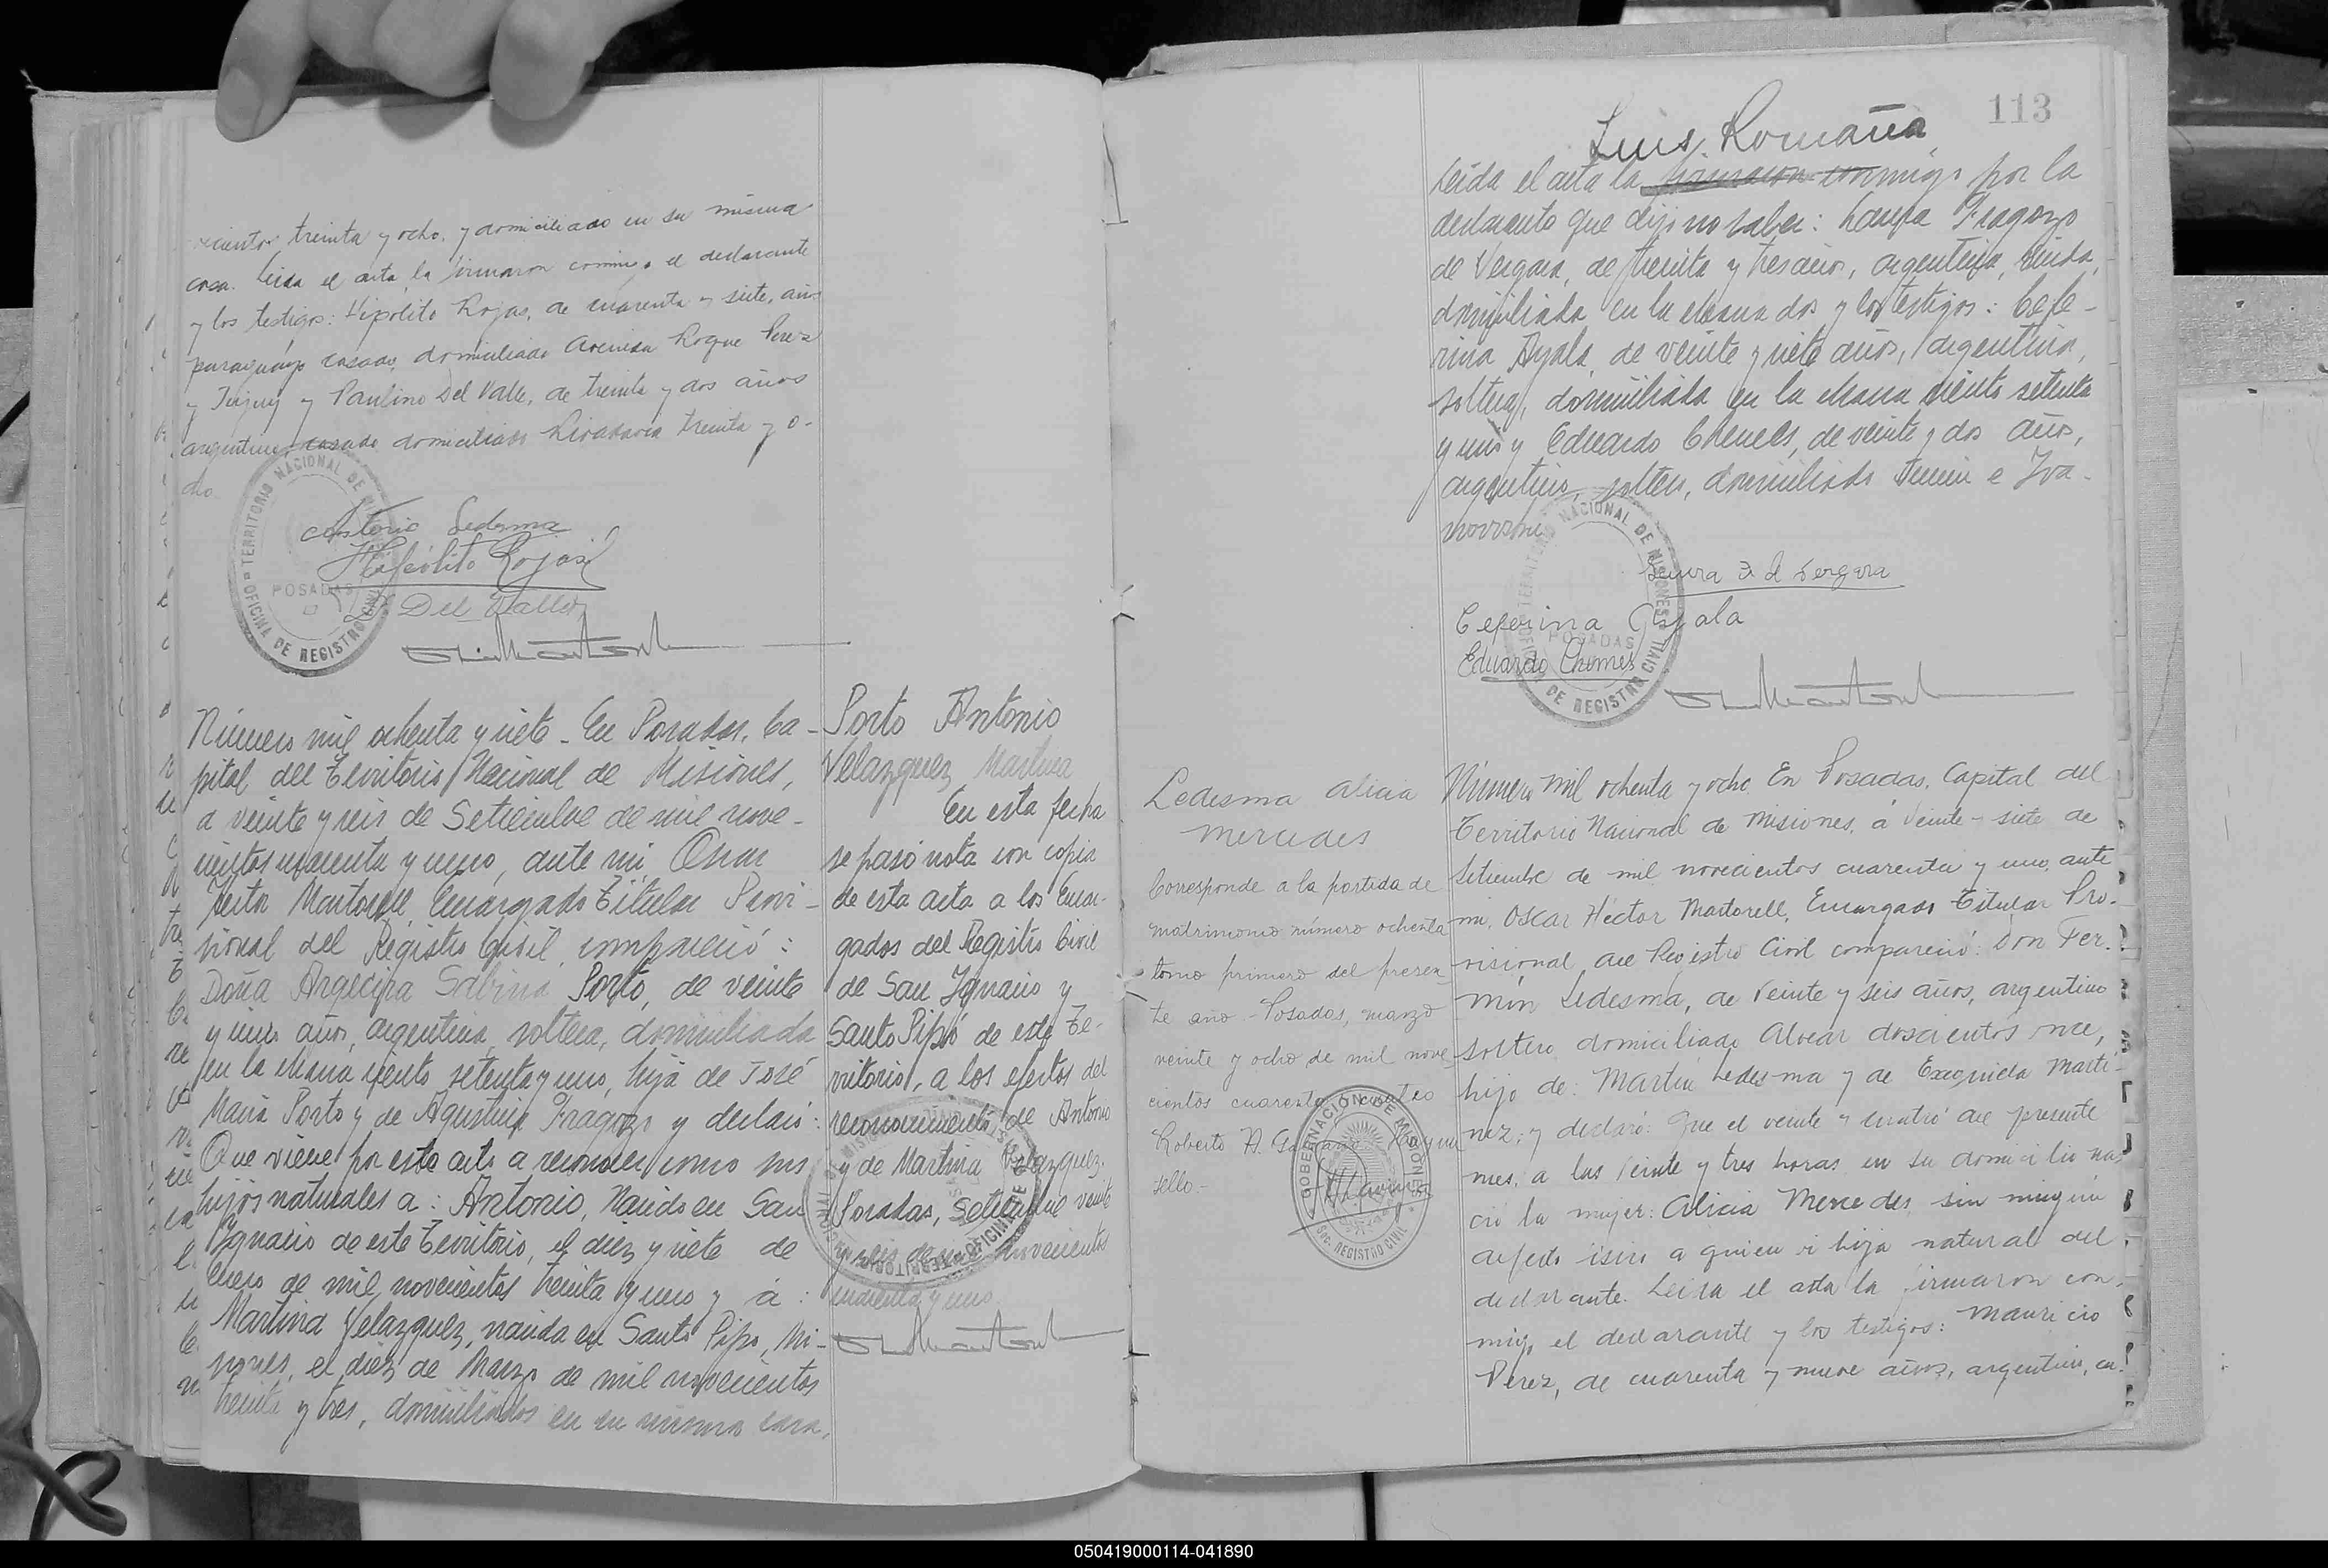 treinta y ocho, y domiciliado en su misma
casa. Leida el acta, la firmaron conmigo el declarante
y los testigos: Hipolito Rojas, de cuarenta y siete, años
paraguayo casado, domiciliado Avenida Roque Perez
y Jujuy y Paulino Del Valle, de treinta y dos años
argentino, casado domiciliado Rivadavia treinta y o-
cho
TERRITORIO NACIONAL DE
POSADAS
OFICINA DE REGISTRO CIVIL
Antonio Ledesma
Hipólito Rojas
Del Valle
Número mil ochenta y siete. En Posadas, Ca-
pital del Territorio Nacional de Misiones,
a veinte y seis de Setiembre de mil nove-
cientos cuarenta y uno, ante mi, Oscar
Hector Martorell, Encargado Titular Provi-
sional del Registro Civil, compareció:
Doña Argecira Sabina Porto, de veinte
y uno años, argentina, soltera, domiciliada
en la chacra ciento setenta y uno, hija de José
Maria Porto y de Agustina Fragozo y declaró:
Que viene por este acto a reconocer como sus
hijos naturales a: Antonio, nacido en San
Ygnacio de este Territorio, el diez y siete de
enero de mil novecientos treinta y uno y á:
Martina Velazquez, nacida en Santo Pipo, Mi-
siones, el diez de Marzo de mil novecientos
treinta y tres, domiciliados en su misma casa,
Porto Antonio
Velazquez Martina
En esta fecha
se pasó nota con copia
de esta acta a los Encar-
gados del Registro Civil
de San Ygnacio y
Santo Pipó de este Te-
rritorio, a los efectos del
reconocimiento de Antonio
y de Martina Velazquez.
Posadas, Setiembre veinte
y seis de mil novecientos
cuarenta y uno
113
Luis Romaña
leida el acta la firmaron conmigo por la
declarante que dijo no saber: Laura Fragozo
de Vergara, de treinta y tres años, argentina, viuda,
domiciliada en la chacra dos y los testigos: Cefe-
rina Ayala, de veinte y siete años, argentina,
soltera, domiciliada en la chacra ciento setenta
y uno y Eduardo Chemes, de veinte y dos años,
argentino, soltero, domiciliado Junin e Iva-
TERRITORIO NACIONAL DE MISIONES
POSADAS
OFICINA DE REGISTRO CIVIL
Laura F. d Vergara
Ceferina Ayala
Eduardo Chemes
Ledesma Alicia
Mercedes
Corresponde a la partida de
matrimonio número ochenta
tomo primero del presen-
te año - Posadas, marzo
veinte y ocho de mil nove
cientos cuarenta y cuatro
Roberto A.
sello.-
GOBERNACIÓN DE MISIONES
Sec. REGISTRO CIVIL
Número mil ochenta y ocho En Posadas, Capital del
Territorio Nacional de Misiones, á veinte-siete de
Setiembre de mil novecientos cuarenta y uno, ante
mi, Oscar Héctor Martorell, Encargado Titular Pro-
visional del Registro Civil compareció: Don Fer-
mín Ledesma, de veinte y seis años, argentino
soltero domiciliado Alvear doscientos once,
hijo de: Martín Ledesma y de Exequiela Marti-
nez; y declaró: Que el veinte y cuatro del presente
mes, a las veinte y tres horas en su domicilio na-
ció la mujer: Alicia Mercedes, sin ningún
defecto fisico a quien vi hija natural del
declarante. Leida el acta la firmaron con-
migo el declarante y los testigos: Mauricio
Perez, de cuarenta y nueve años, argentino, ca-
050419000114-041890